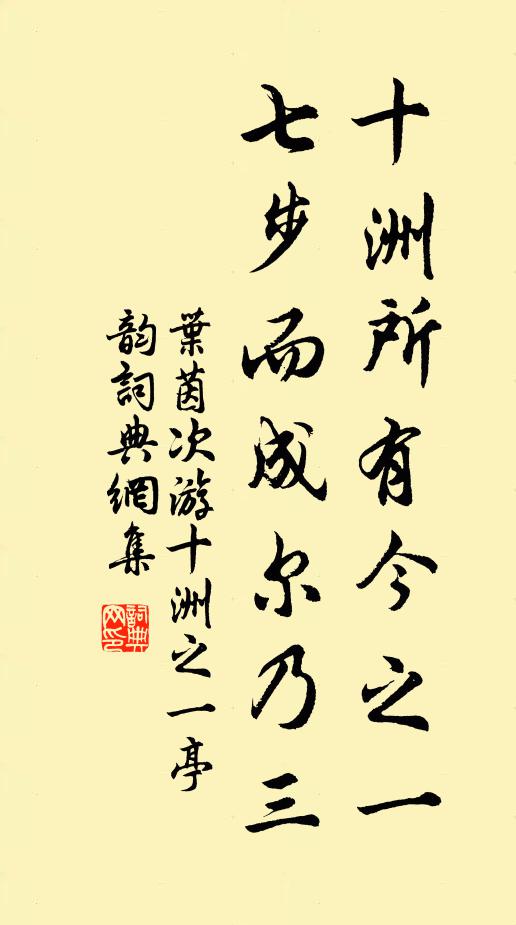 十洲所有今之一
七步而成尔乃三
葉茵次游十洲之一亭
韵詞典網集
詞典网印